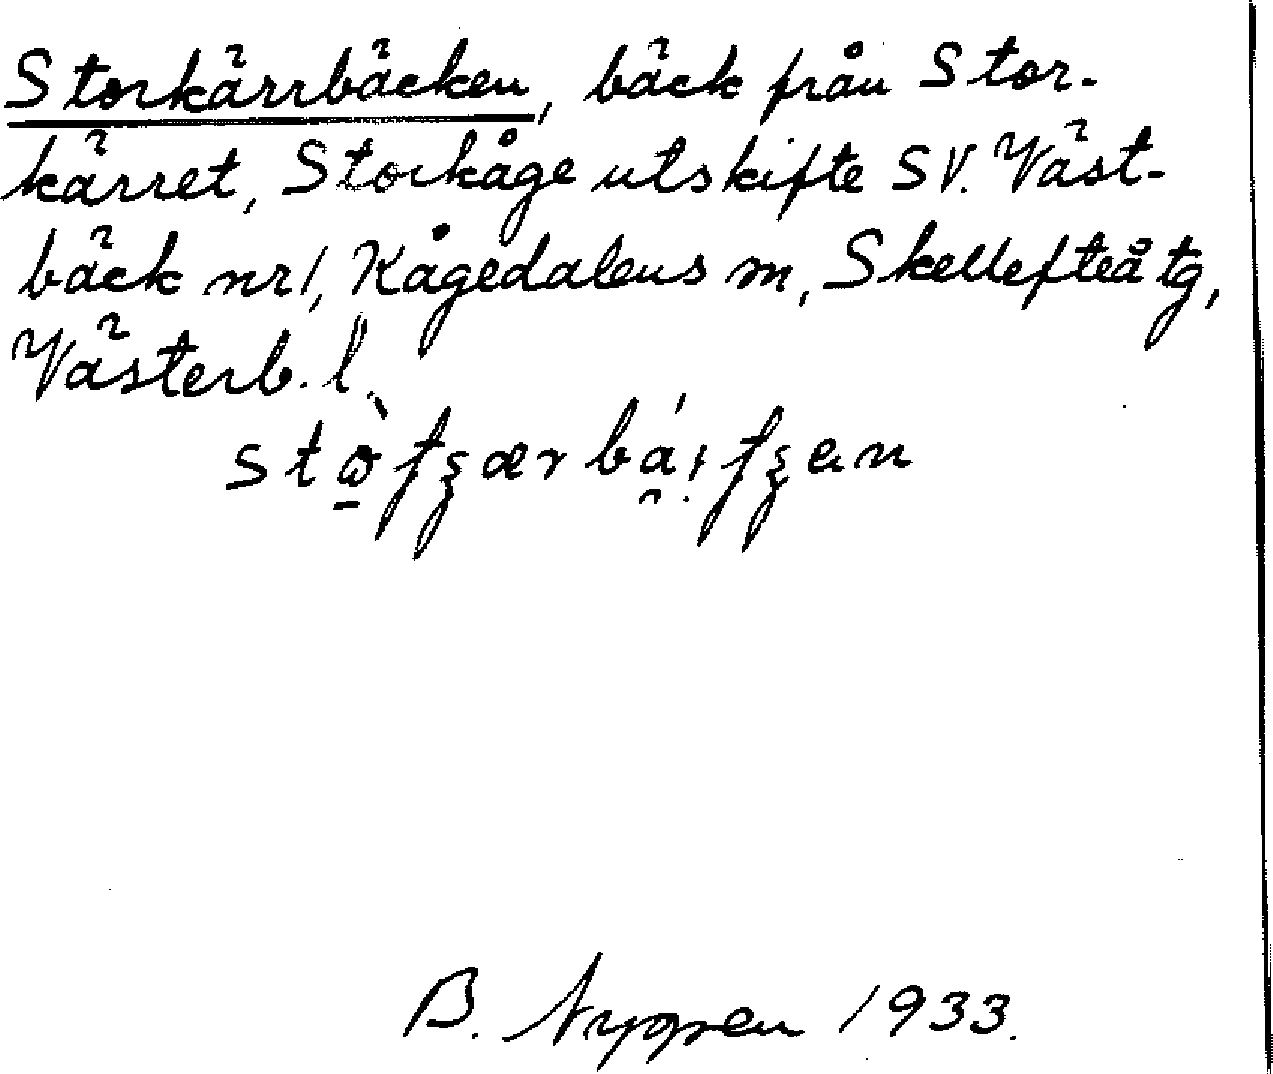 Storkärrbäcken, bäck från Stor-
kärret, Storkåge utskifte SV. Väst-
bäck nr 1, Kågedalens m, Skellefteå tg,
Västerb. l.
B. Nygren 1933.